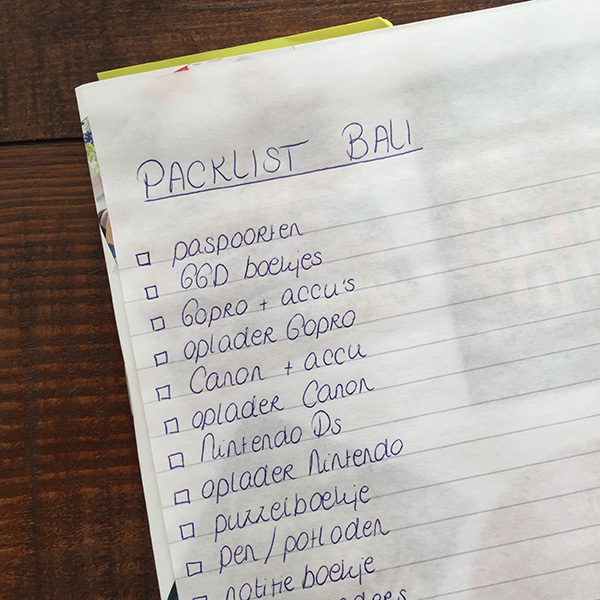 PACKLIST BALI
paspoorten
GGD boekjes
Gopro + accu's
oplader Gopro
Canon + accu
oplader Canon
Nintendo Ds
oplader Nintendo
puzzelboekje
pen / potloden
notitie boekje